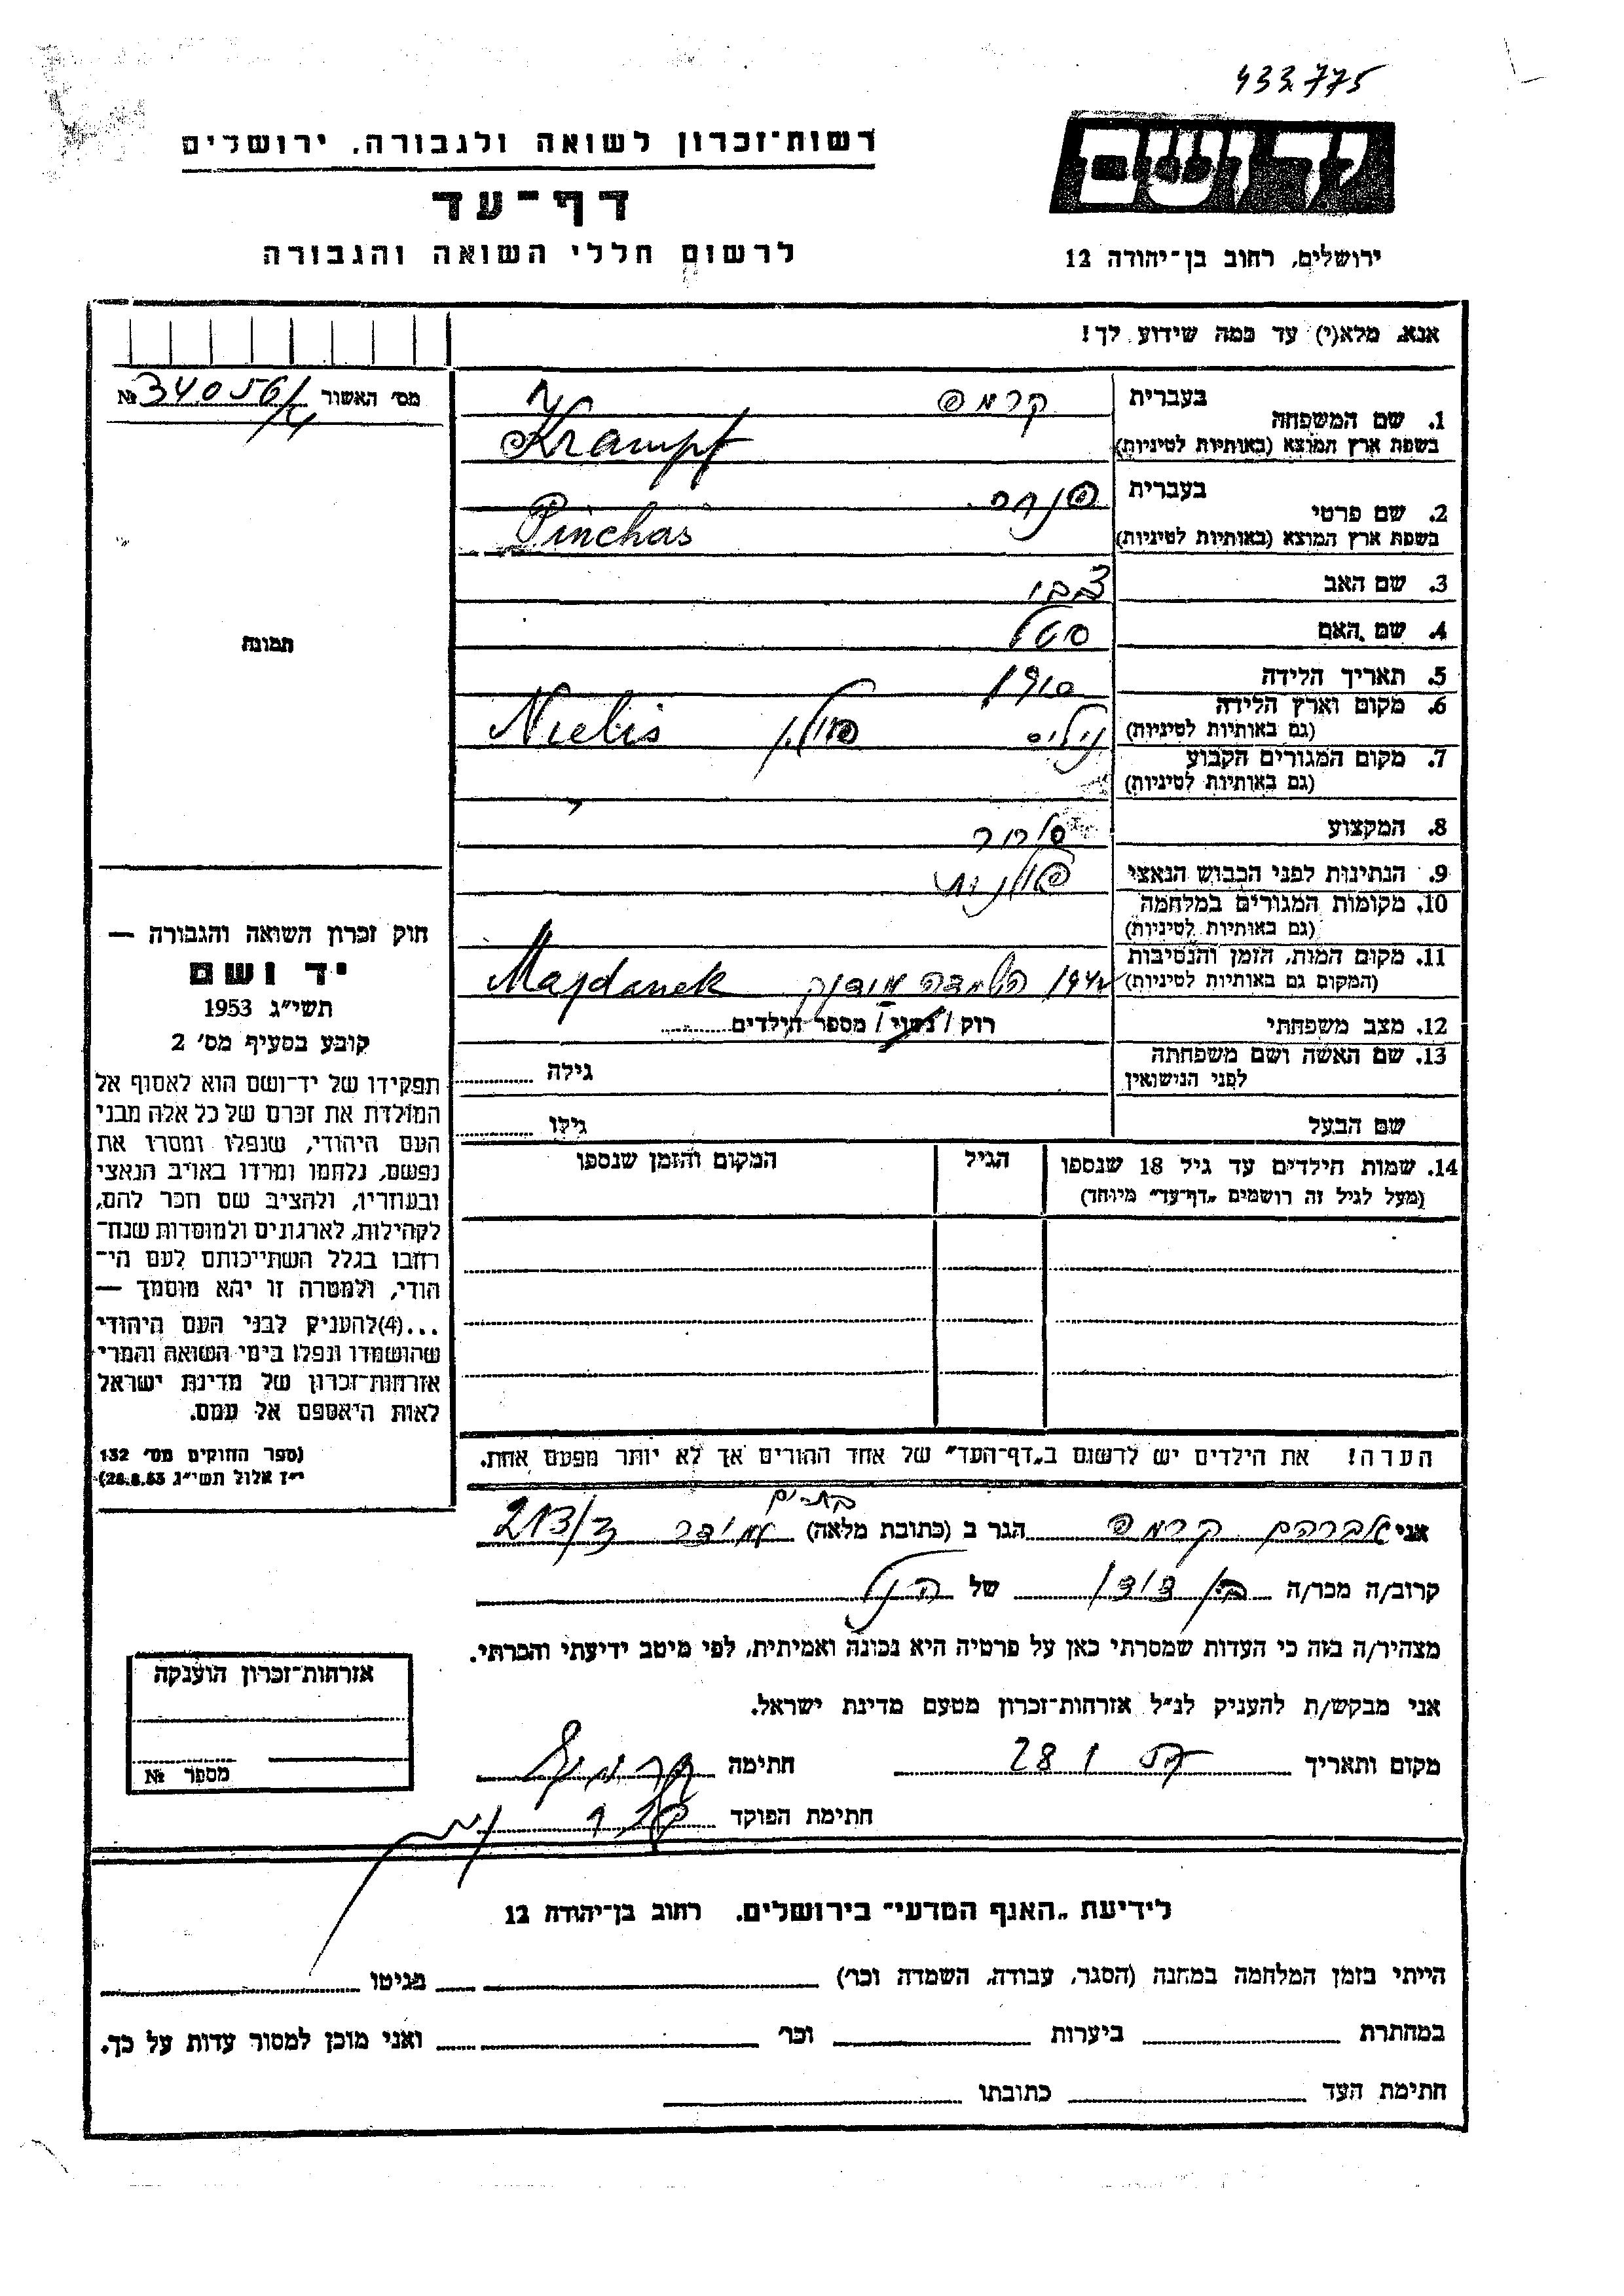 433775
רשות־זכרון לשואה ולגבורה, ירושלים
דף־עד
לרשום חללי השואה והגבורה
יד ושם
ירושלים, רחוב בן־יהודה 12
אנא, מלא(י) עד כמה שידוע לך!
מס׳ האשור № 340561/4
1. שם המשפחה בעברית קרמפ
בשפת ארץ המוצא (באותיות לטיניות) Krampf
2. שם פרטי בעברית פנחס
בשפת ארץ המוצא (באותיות לטיניות) Pinchas
3. שם האב צבי
4. שם האם
5. תאריך הלידה 1910
6. מקום וארץ הלידה (גם באותיות לטיניות) פולין Nielis
7. מקום המגורים הקבוע (גם באותיות לטיניות)
8. המקצוע סוחר
9. הנתינות לפני הכבוש הנאצי פולנית
10. מקומות המגורים במלחמה (גם באותיות לטיניות)
11. מקום המות, הזמן והנסיבות (המקום גם באותיות לטיניות) 1942 השמדה מידנק Majdanek
12. מצב משפחתי רוק / נשוי / מספר הילדים
13. שם האשה ושם משפחתה לפני הנישואין גילה
שם הבעל גילו
14. שמות הילדים עד גיל 18 שנספו הגיל המקום והזמן שנספו
(מעל לגיל זה רושמים „דף־עד״ מיוחד)
תמונה
חוק זכרון השואה והגבורה —
יד ושם
תשי״ג 1953
קובע בסעיף מס׳ 2
תפקידו של יד־ושם הוא לאסוף אל
המולדת את זכרם של כל אלה מבני
העם היהודי, שנפלו ומסרו את
נפשם, נלחמו ומרדו באויב הנאצי
ובעוזריו, ולהציב שם וזכר להם,
לקהילות, לארגונים ולמוסדות שנח־
רבו בגלל השתייכותם לעם הי־
הודי, ולמטרה זו יהא מוסמך —
...(4)להעניק לבני העם היהודי
שהושמדו ונפלו בימי השואה והמרי
אזרחות־זכרון של מדינת ישראל
לאות היאספם אל עמם.
(ספר החוקים מס׳ 132
י״ז אלול תשי״ג 28.8.53)
הערה! את הילדים יש לרשום ב„דף־העד״ של אחד ההורים אך לא יותר מפעם אחת.
בת־ים
אני אברהם קרמפ הגר ב (כתובת מלאה) עמידר 213/3
קרוב/ה מכר/ה בן דודו של הנ״ל
מצהיר/ה בזה כי העדות שמסרתי כאן על פרטיה היא נכונה ואמיתית, לפי מיטב ידיעתי והכרתי.
אני מבקש/ת להעניק לנ״ל אזרחות־זכרון מטעם מדינת ישראל.
מקום ותאריך 28 1 חתימה
חתימת הפוקד
אזרחות־זכרון הוענקה
מספר №
לידיעת „האגף המדעי״ בירושלים, רחוב בן־יהודה 12
הייתי בזמן המלחמה במחנה (הסגר, עבודה, השמדה וכו׳) בגיטו
במחתרת ביערות וכו׳ ואני מוכן למסור עדות על כך.
חתימת העד כתובתו